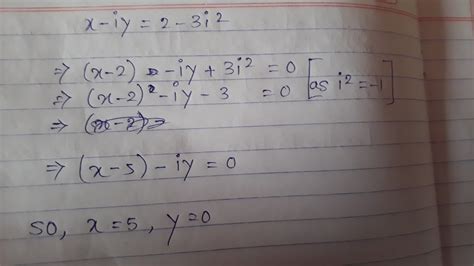 x-iy = 2-3i²
⇒ (x-2) -iy+3i² = 0
⇒ (x-2) -iy-3 = 0 [as i²=-1]
⇒ (x-2)=
⇒ (x-5)-iy=0
SO, x=5, y=0